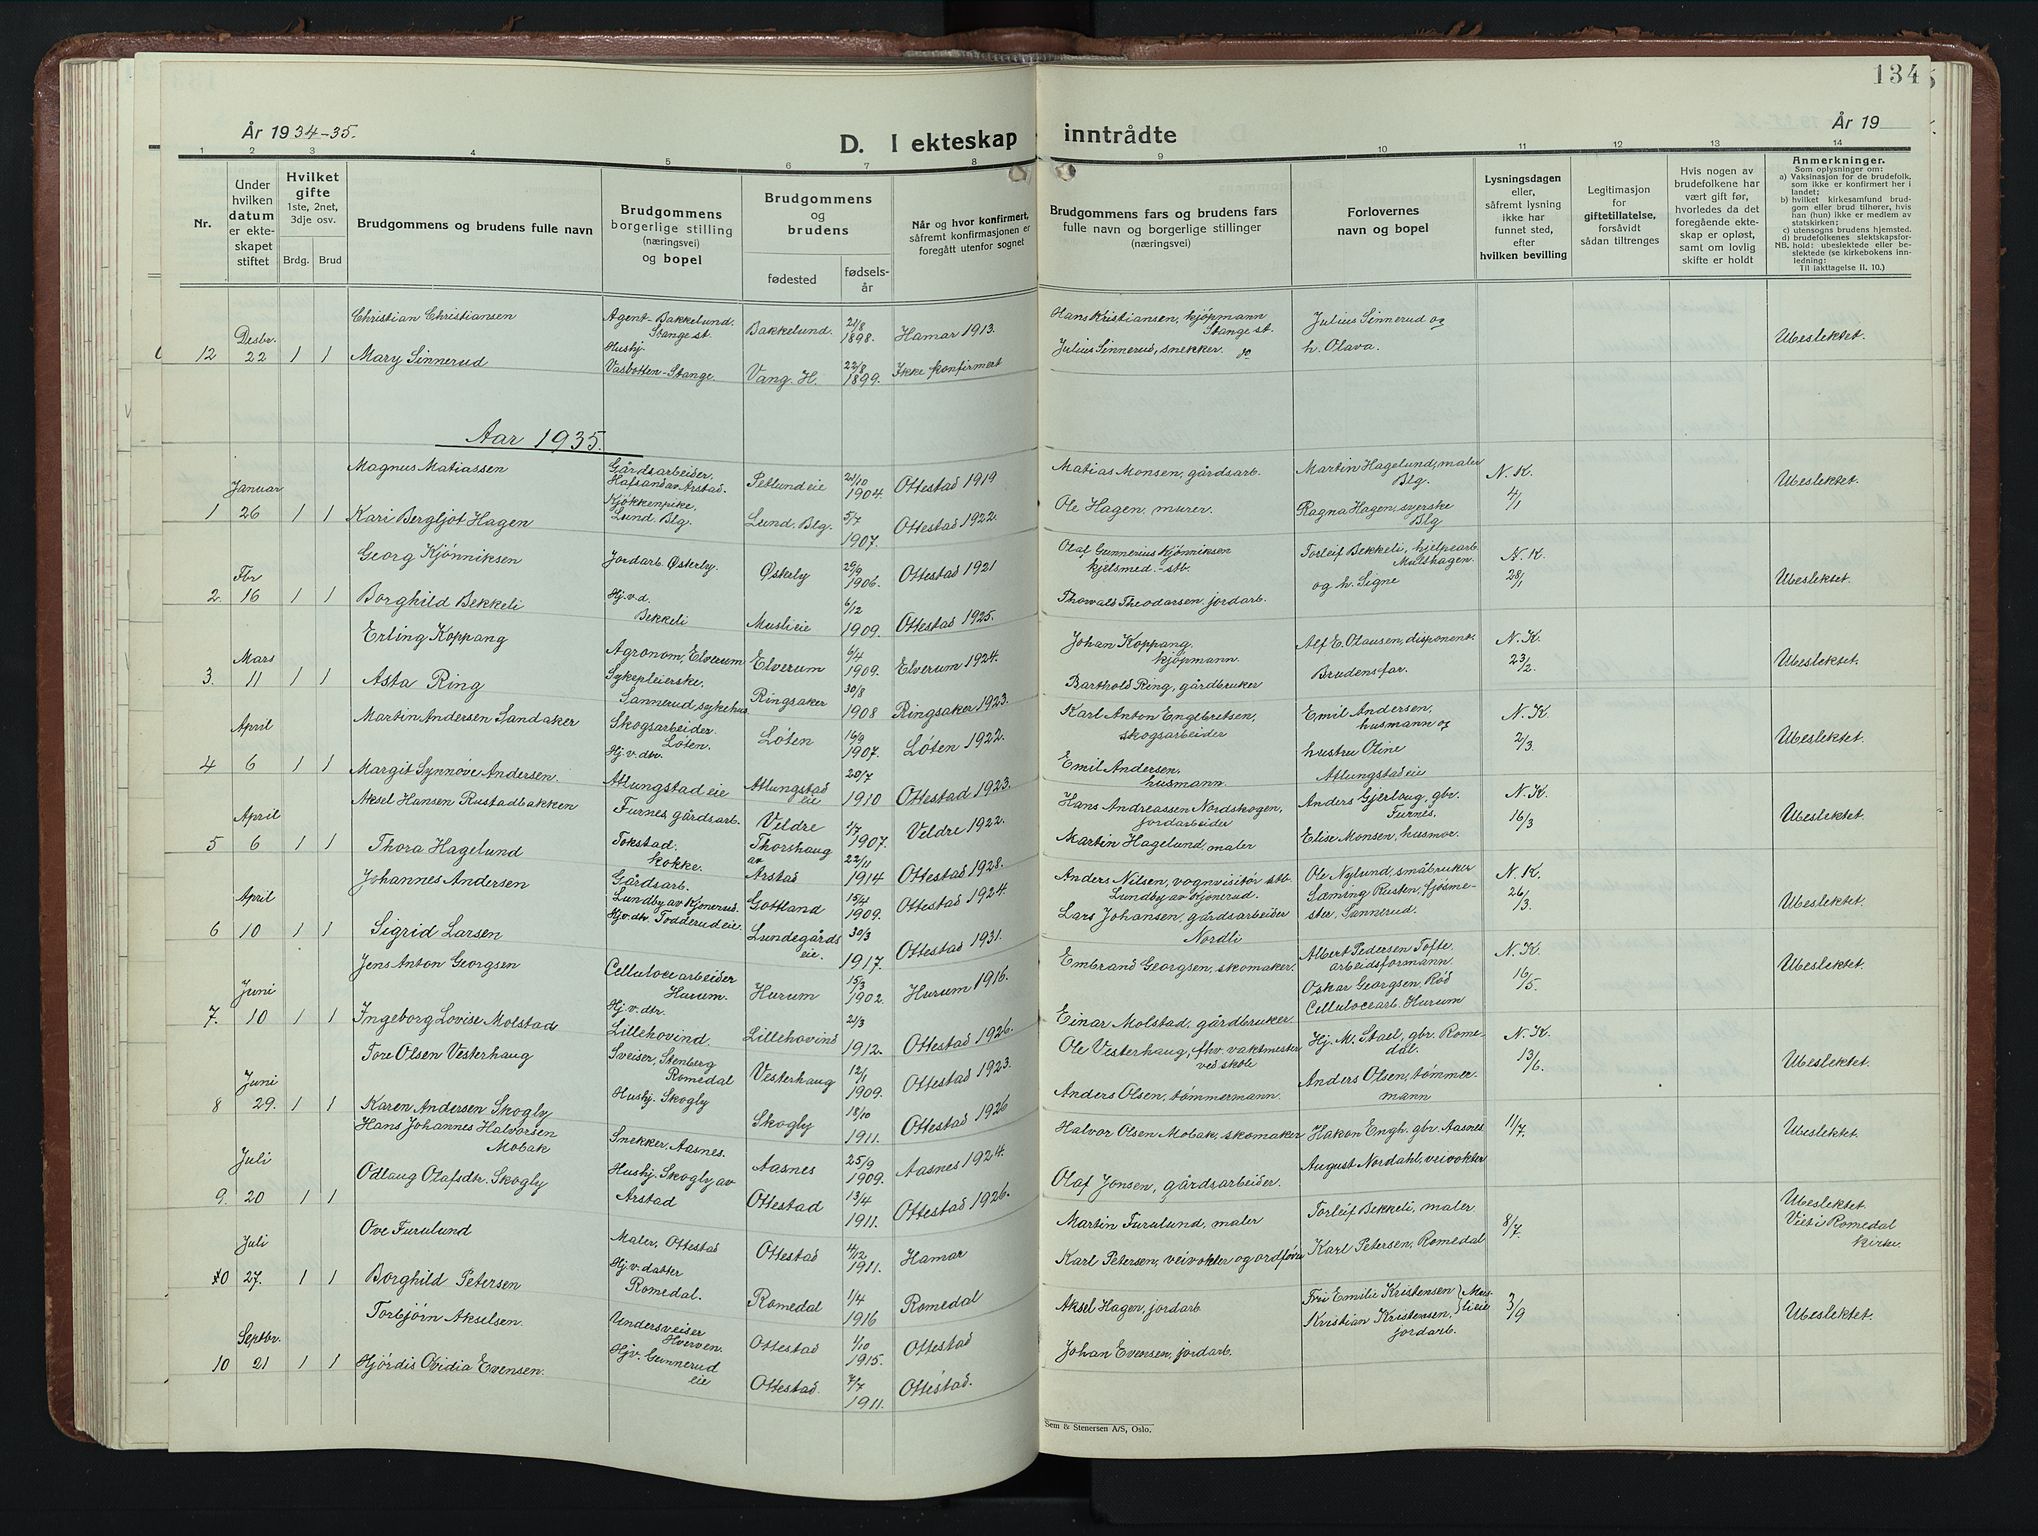 134
År 1934-35.
D. I ekteskap inntrådte
År 19
1 2 3 4 5 6 7 8 9 10 11 12 13 14
Nr.
Under hvilken datum er ekteskapet stiftet
Hvilket gifte 1ste, 2net, 3dje osv.
Brdg. Brud
Brudgommens og brudens fulle navn
Brudgommens borgerlige stilling (næringsvei) og bopel
Brudgommens og brudens
fødested
fødselsår
Når og hvor konfirmert, såfremt konfirmasjonen er foregått utenfor sognet
Brudgommens fars og brudens fars fulle navn og borgerlige stillinger (næringsvei)
Forlovernes navn og bopel
Lysningsdagen eller, såfremt lysning ikke har funnet sted, efter hvilken bevilling
Legitimasjon for giftetillatelse, forsåvidt sådan tiltrenges
Hvis nogen av brudefolkene har vært gift før, hvorledes da det foregående ekteskap er opløst, samt om lovlig skifte er holdt
Anmerkninger.
Som oplysninger om:
a) Vaksinasjon for de brudefolk, som ikke er konfirmert her i landet;
b) hvilket kirkesamfund brudgom eller brud tilhører, hvis han (hun) ikke er medlem av statskirken;
c) utensogns brudens hjemsted.
d) brudefolkenes slektskapsforhold: ubeslektede eller beslektede (se kirkebokens innledning:
NB. Til iakttagelse II. 10.)
Christian Christiansen Agent-Bakkelund. Stange st. Bakkelund. 21/8 1898. Hamar 1913. Hans Kristiansen, kjøpmann Stange st. Julius Sinnerud og
12 Desbr. 22 1 1 Mary Sinnerud Hushj. Vasbotten-Stange. Vang. H. 22/8 1899. Ikke konfirmert Julius Sinnerud, snekker. do h. Olava. Ubeslektet.
Aar 1935.
Magnus Matiassen Gårdsarbeider, Hafsand av Arstad. Petlundeie 21/10 1904. Ottestad 1919 Matias Monsen, gårdsarb. Martin Hagelund, maler Blg. N. K. 4/1
1 Januar 26 1 1 Kari Bergljot Hagen Kjøkkenpike, Lund. Blg. Lund. Blg. 5/7 1907. Ottestad 1922. Ole Hagen, murer. Ragna Hagen, syerske Blg Ubeslektet.
Georg Kjønniksen Jordarb. Østerly. Østerly 29/9 1906. Ottestad 1921 Olaf Gunnerius Kjønniksen kjelsmed.-stb. Torleif Bekkeli, hjelpearb. Mulshagen. N. K. 28/1
2. Fbr 16 1 1 Borghild Bekkeli Hj.v.d. Bekkeli Muslieie 6/12 1909. Ottestad 1925. Thowald Theodarsen, jordarb. og h. Signe Ubeslektet.
Erling Koppang Agronom, Elverum Elverum 6/4 1909. Elverum 1924. Johan Koppang, kjøpmann. Alf E. Olausen, disponent. N. K. 23/2.
3. Mars 11 1 1 Asta Ring Sykepleierske. Sannerud sykehus Ringsaker 30/8 1908 Ringsaker 1923. Barthold Ring, gårdbruker Brudens far. Ubeslektet.
Martin Andersen Sandaker Skogsarbeider. Løten. Løten 16/9 1907. Løten 1922. Karl Anton Engebretsen, skogsarbeider Emil Andersen, husmann og N. K. 2/3.
4 April 6 1 1 Margit Synnøve Andersen. Hj.v.dtr. Atlungstad eie Atlungstad eie 20/7 1910 Ottestad 1923. Emil Andersen, husmann. hustru Oline Atlungstadeie Ubeslektet.
Aksel Hansen Rustadbakken Furnes gårdsarb. Veldre 1/7 1907. Veldre 1922. Hans Andreassen Nordskogen, jordarbeider Anders Gjerloug, gbr. Furnes. N. K. 16/3
5 April 6 1 1 Thora Hagelund Tokstad. kokke. Thorshaug av Arstad 22/11 1914 Ottestad 1928. Martin Hagelund, maler Elise Monsen, husmor. Ubeslektet.
Johannes Andersen Gårdsarb. Lundby av Kjonerud. Gottland 15/4 1909. Ottestad 1924. Anders Nilsen, vognvisitør stb. Lundby av Kjonerud. Ole Nylund, småbruker N. K. 26/3.
6 April 10 1 1 Sigrid Larsen Hj.v.dtr. Todderudeie. Lundegårds eie. 30/3 1917. Ottestad 1931. Lars Johansen, gårdsarbeider Nordli Sæming Rusten, fjøsmester, Sannerud. Ubeslektet.
Jens Anton Georgsen Cellulocearbeider Hurum. Hurum 15/3 1902. Hurum 1916. Embrand Georgsen, skomaker. Albert Pedersen Tofte, arbeidsformann. N. K. 16/5.
7. Juni 10 1 1 Ingeborg Lovise Molstad Hj.v.dtr. Lillehovind. Lillehovind 21/3 1912. Ottestad 1926. Einar Molstad, gårdbruker. Oskar Georgsen, Rød Cellulocearb. Hurum Ubeslektet.
Tore Olsen Vesterhaug Sveiser, Stenberg Romedal Vesterhaug 12/1 1909. Ottestad 1923. Ole Vesterhaug, fhv. vaktmester ved skole Hj. M. Stael, gbr. Romedal. N. K. 13/6.
8 Juni 29. 1 1 Karen Andersen Skogly Hushj. Skogly Skogly 18/10 1911. Ottestad 1926 Anders Olsen, tømmermann. Anders Olsen, tømmermann Ubeslektet.
Hans Johannes Halvorsen Mobak Snekker. Aasnes. Aasnes 25/9 1909. Aasnes 1924. Halvor Olsen Mobak, skomaker Hakon Engh. gbr. Aasnes 11/7.
9. Juli 20 1 1 Odlaug Olafsdtr. Skogly Hushj. Skogly av Arstad Ottestad 13/4 1911. Ottestad 1926. Olaf Jonsen, gårdsarbeider. August Nordahl, veivokter Ubeslektet.
Ove Furulund Maler, Ottestad Ottestad 4/12 1911. Hamar Martin Furulund, maler Torleif Bekkeli, maler 8/7.
10 Juli 27. 1 1 Borghild Petersen Hj.v. datter Romedal. Romedal 1/4 1916 Romedal Karl Petersen, veivokter og ordfører Karl Petersen, Romedal Ubeslektet. Viet i Romedal kirke.
Torbjørn Akselsen. Undersveiser Hverven. Ottestad 1/10 1915. Ottestad Aksel Hagen, jordarb. Fru Emilie Kristensen 3/9
10 Septbr. 21 1 1 Hjórdis Ovidia Evensen. Hjv. Gunnerud eie Ottestad. 7/7 1911. Ottestad. Johan Evensen, jordarb. Kristian Kristensen, jordarb. } Muslieie Ubeslektet.
Sem & Stenersen A/S, Oslo.